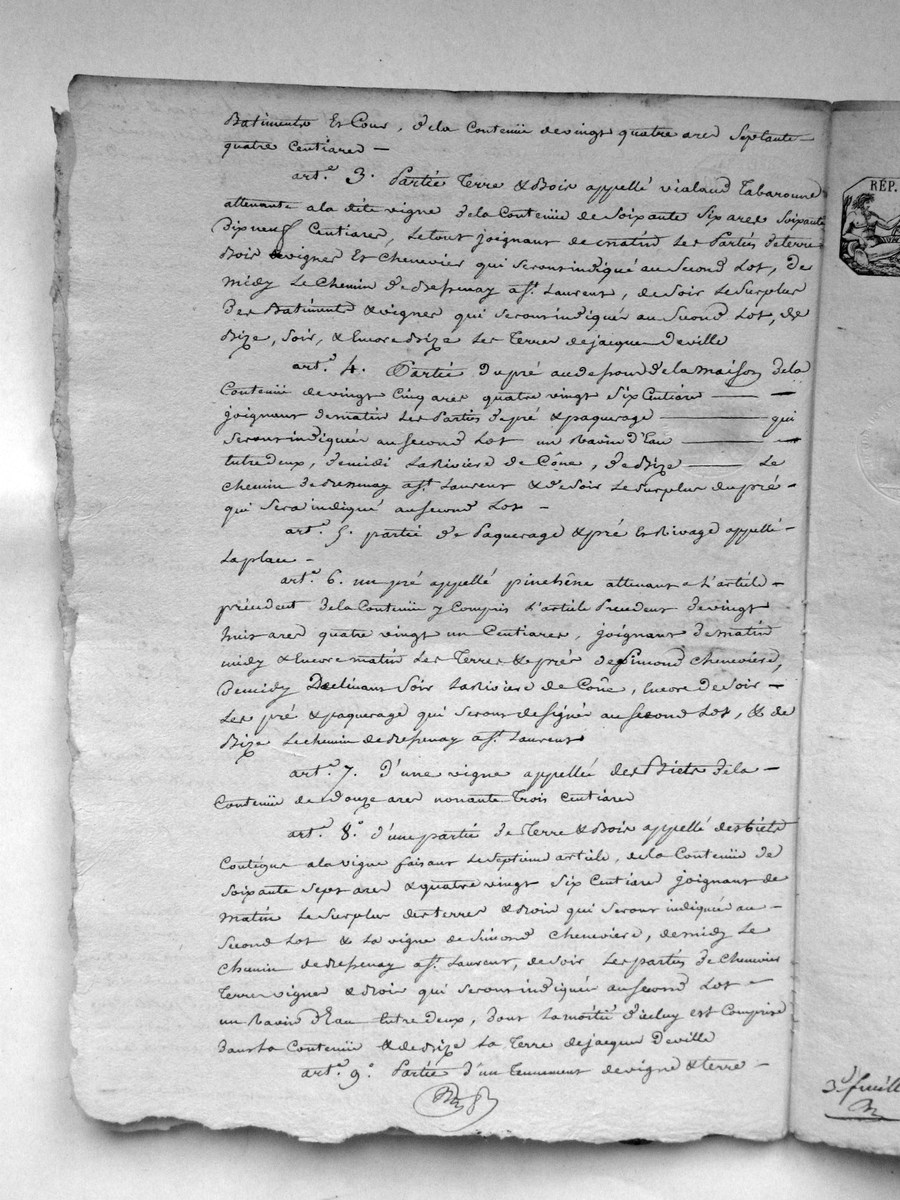 Batiments Et Cour, de la Contenüe de vingt quatre ares Septante
quatre Centiares —
art.e 3. Partie Terre & Bois appellé vialaud Tabaroune
attenante a la dite vigne de la Contenüe de Soixante Six ares Soixante
Dix neuf Centiares, Le tout joignant de matin Les Parties de terre
Bois & vignes Et Chenevier qui Seront indiqué au Second Lot, De
midy Le Chemin de a St. Laurent, de Soir Le Surplus
Des Batiments & vignes qui Seront indiqué au Second Lot, de
Bize, Soir, & Encore Bize Les Terres de jacques Deville
art.e 4. Partie Du pré au dessous de la Maison de la
Contenüe de vingt Cinq ares quatre vingt Six Centiares —
joignant de matin Les Parties de pré & paquerage — qui
Seront indiquée au Second Lot un Ravin d'Eau —
Entre deux, de midi La Riviere de Cône, de Bize — Le
Chemin de a St. Laurent & de Soir Le Surplus du pré -
qui Sera indiqué au Second Lot -
art.e 5. partie de Paquerage & pré Et Rivage appellé -
La place -
art.e 6. un pré appellé attenant a L'article -
précedent de la Contenüe y Compris L'article Precedent de vingt
huit ares quatre vingt un Centiares, joignant de matin
midy & Encore matin Les Terres & prés de Simond Cheneviere,
De midy Declinant Soir La Riviere de Cône, Encore de Soir -
Les pré & paquerage qui Seront designé au Second Lot, & de
Bize Le chemin de a St. Laurent
art.e 7. d'une vigne appellée des Biets de la -
Contenüe de Douze ares nonante Trois Centiares
art.e 8.o d'une partie de Terre & Bois appellé des Biets
Contigue a la vigne faisant Le Septieme article, de la Contenüe de
Soixante Sept ares & quatre vingt Six Centiares joignant de
Matin Le Surplus des terres & Bois qui Seront indiquée au -
Second Lot & La vigne de Simond Cheneviere, de midy Le
Chemin de a St. Laurent, de Soir Les parties de Chenevier
Terre vignes & Bois qui Seront indiquée au Second Lot -
un Ravin d'Eau Entre Deux, Dont La moitié d'icelluy est Comprise
Dans La Contenüe & de Bize La Terre de jacques Deville
art.e 9.o Partie d'un Tennement de vigne & terre -
RÉP.
3.e feuille